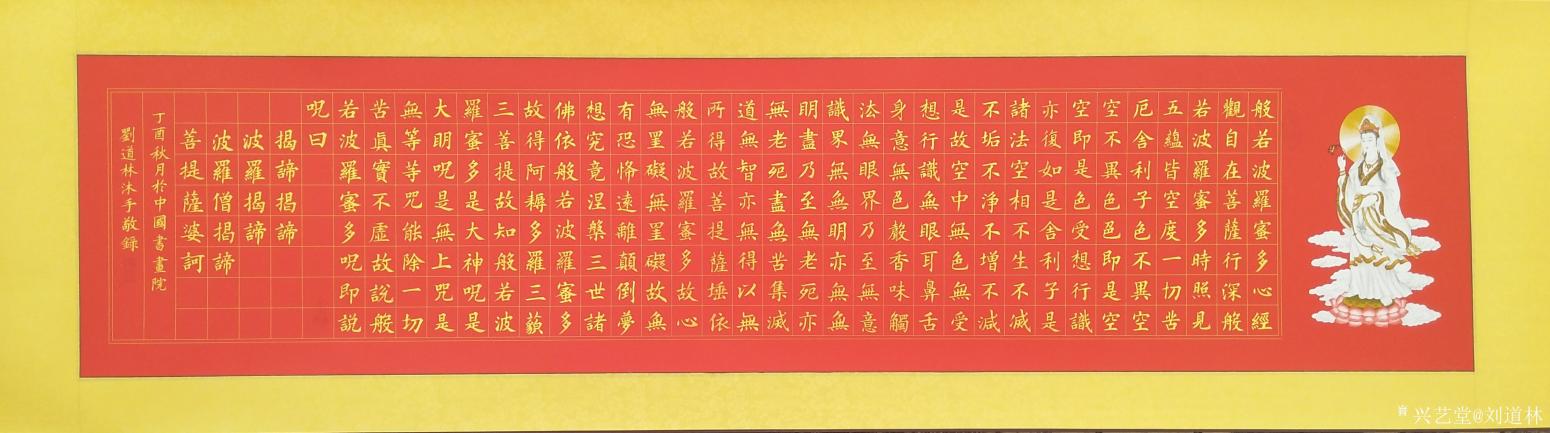 般若波羅蜜多心經
觀自在菩薩行深般
若波羅蜜多時照見
五蘊皆空度一切苦
厄舍利子色不異空
空不異色色即是空
空即是色受想行識
亦復如是舍利子是
諸法空相不生不滅
不垢不淨不增不減
是故空中無色無受
想行識無眼耳鼻舌
身意無色聲香味觸
法無眼界乃至無意
識界無無明亦無無
明盡乃至無老死亦
無老死盡無苦集滅
道無智亦無得以無
所得故菩提薩埵依
般若波羅蜜多故心
無罣礙無罣礙故無
有恐怖遠離顛倒夢
想究竟涅槃三世諸
佛依般若波羅蜜多
故得阿耨多羅三藐
三菩提故知般若波
羅蜜多是大神呪是
大明呪是無上咒是
無等等咒能除一切
苦真實不虛故說般
若波羅蜜多呪即說
呪曰
揭諦揭諦
波羅揭諦
波羅僧揭諦
菩提薩婆訶
丁酉秋月於中國書畫院
劉道林沐手敬錄
兴艺堂@刘道林